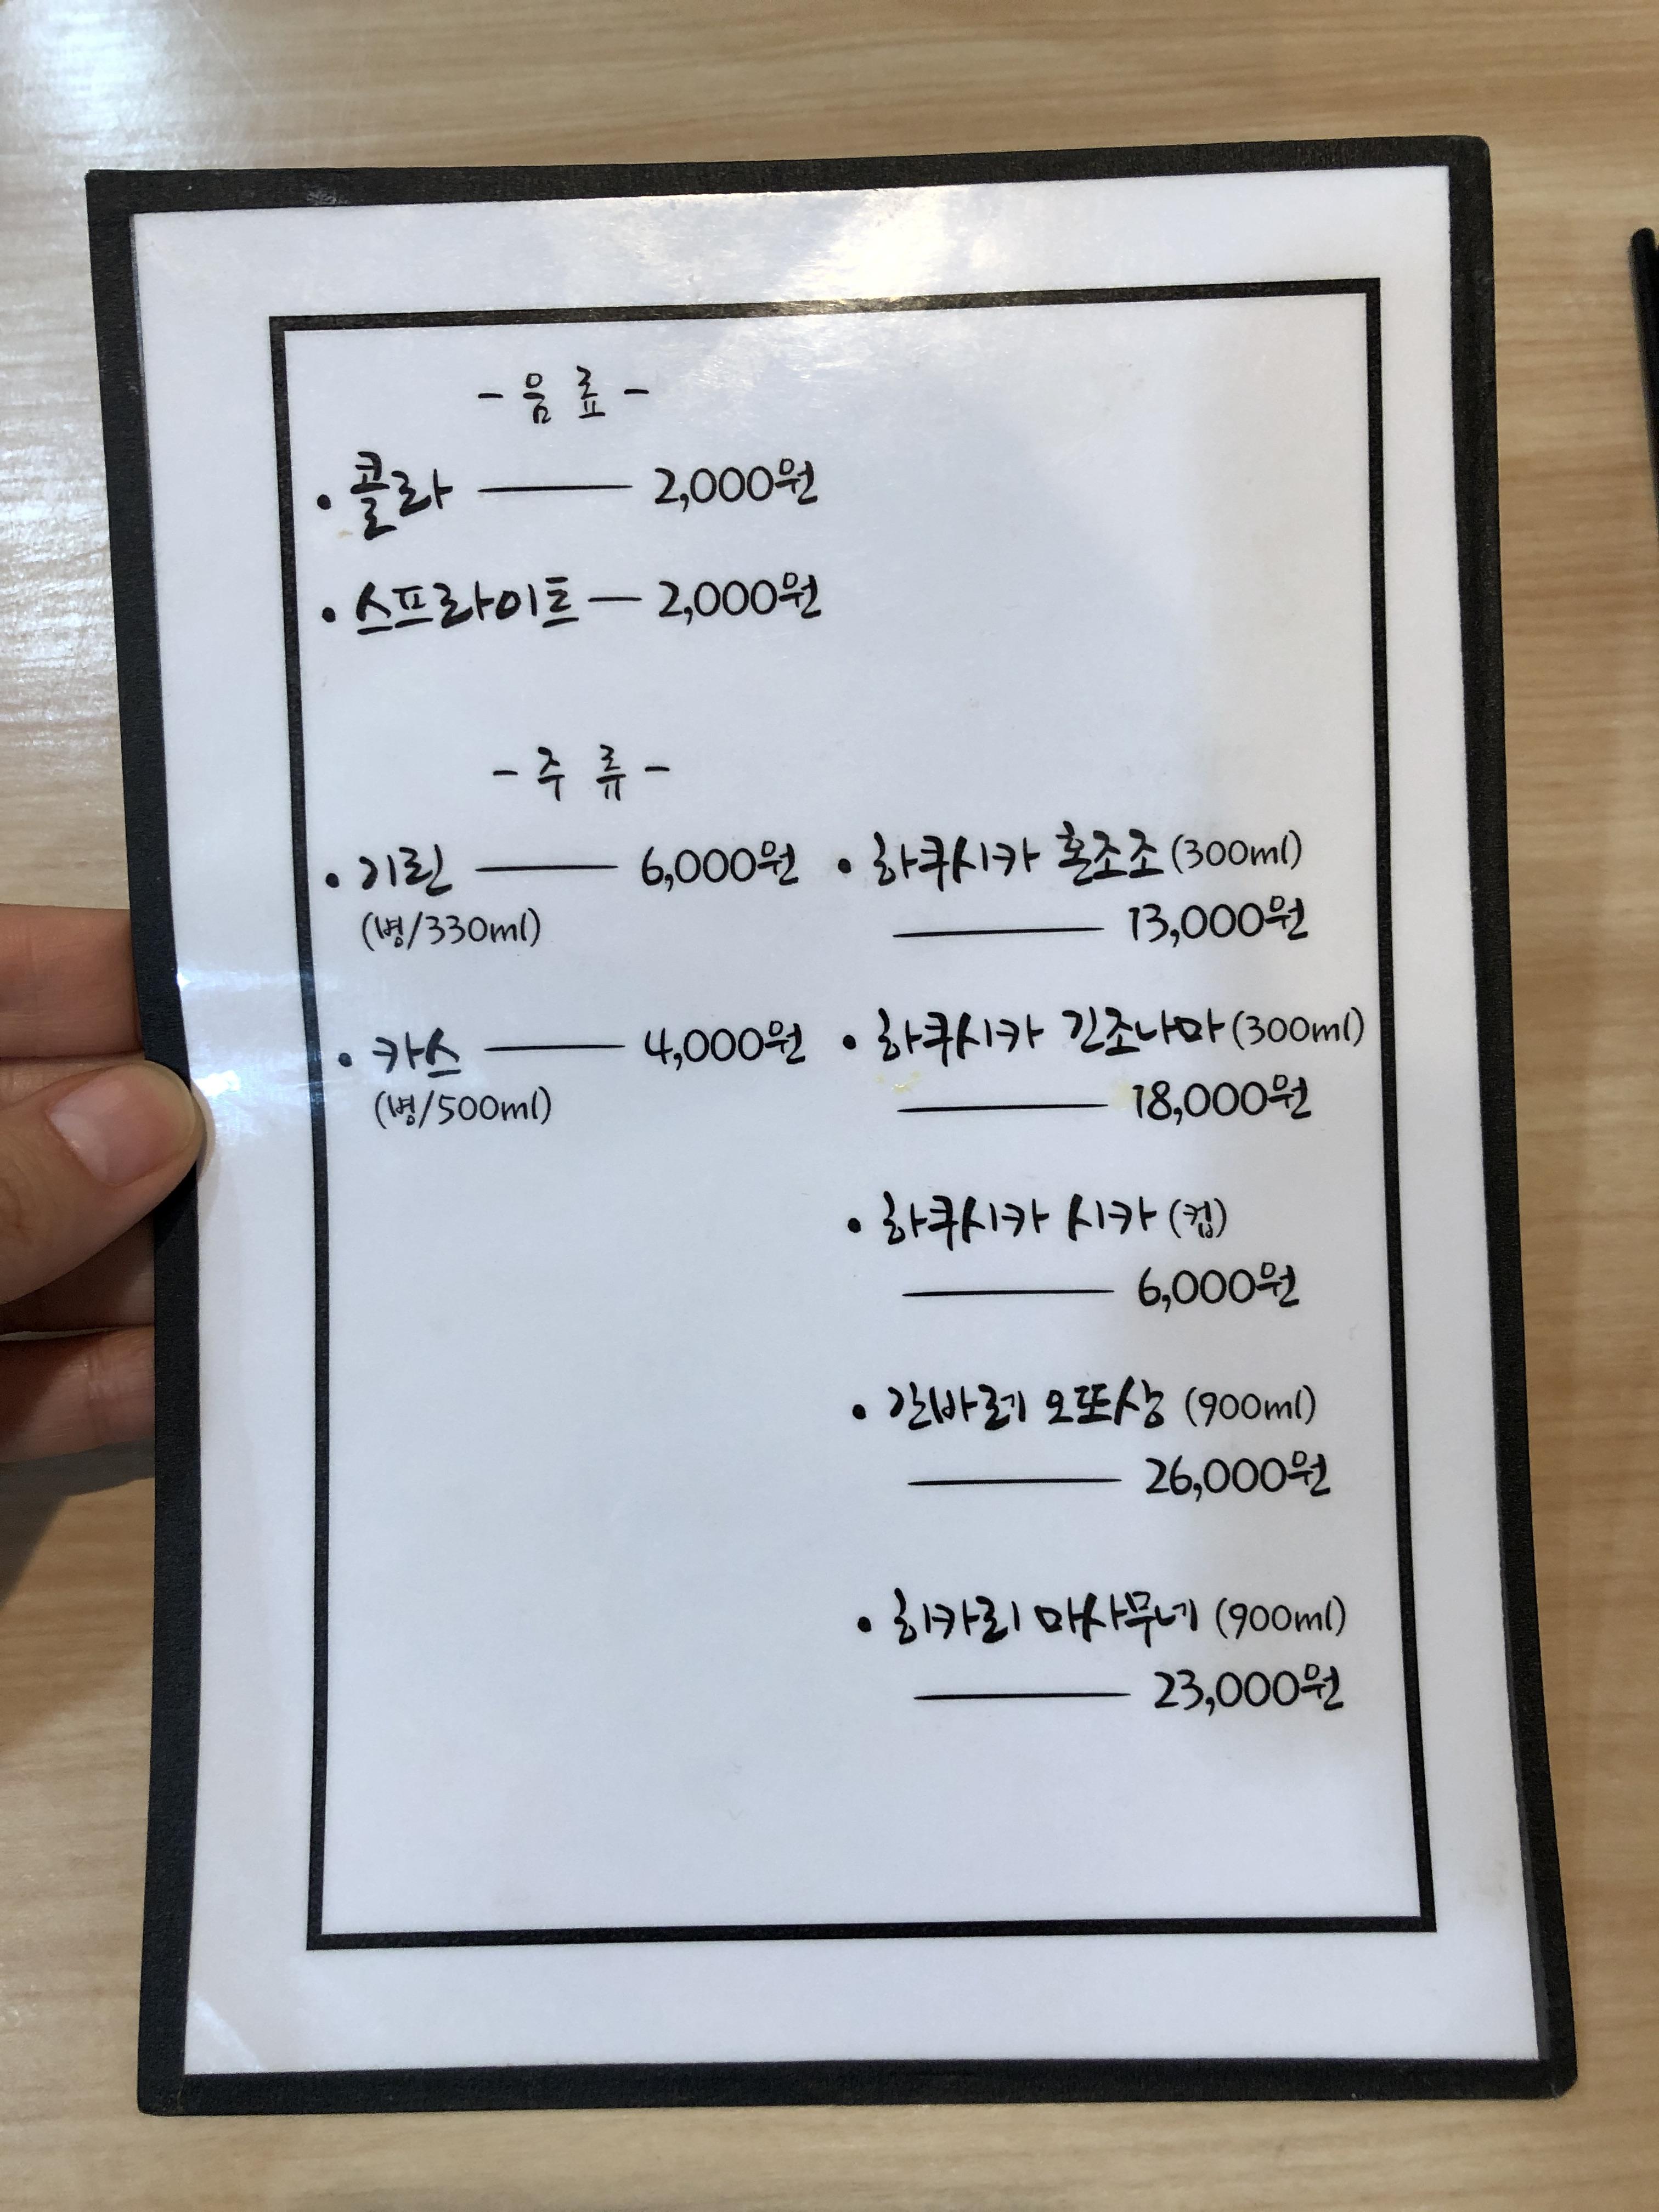 - 음 료 -
• 콜라 —— 2,000원
• 스프라이트 — 2,000원
- 주 류 -
• 기린 —— 6,000원
(병/330ml)
• 카스 —— 4,000원
(병/500ml)
• 하쿠시카 혼조조 (300ml)
—— 13,000원
• 하쿠시카 긴조나마 (300ml)
—— 18,000원
• 하쿠시카 시카 (컵)
—— 6,000원
• 간바레 오또상 (900ml)
—— 26,000원
• 히카리 마사무네 (900ml)
—— 23,000원